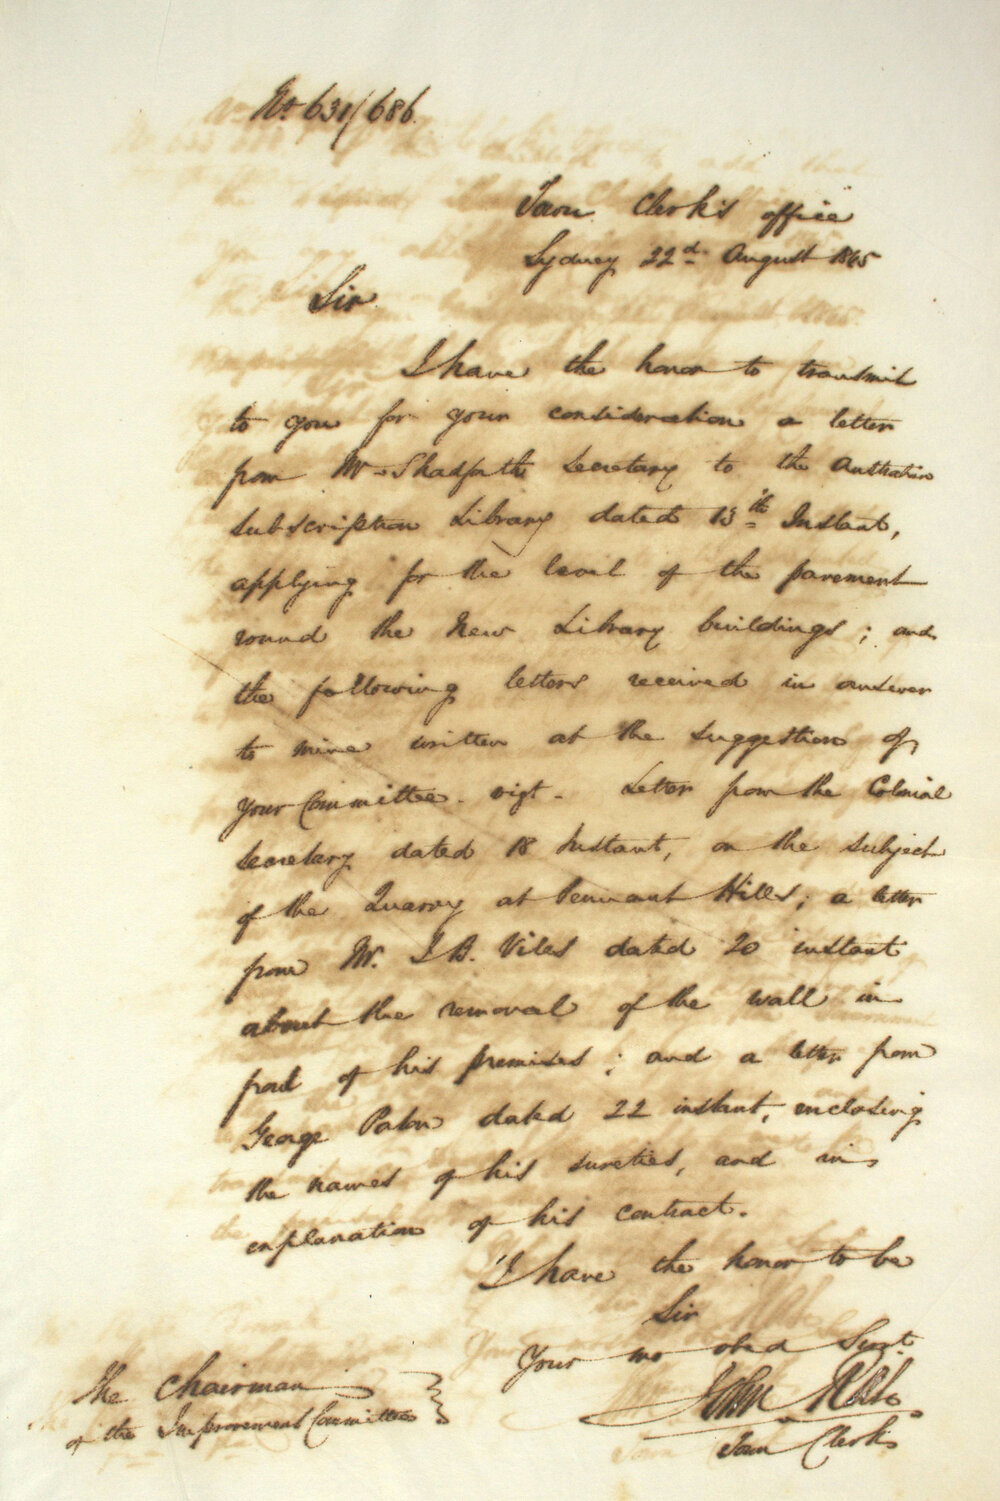 No 631/686.
Town Clerk's office
Sydney 22d August 1845
Sir
I have the honor to transmit
to you for your consideration a letter
from Mr Shadforth Secretary to the Australian
Subscription Library dated 13th Instant,
applying for the level of the pavement
round the New Library buildings; and
the following letters received in answer
to mine written at the suggestion of
your Committee. vizt. Letter from the Colonial
Secretary dated 18 Instant, on the subject
of the Quarry at Pennant Hills; a letter
from Mr. J. B. Viles dated 20 instant
about the removal of the wall in
front of his premises; and a letter from
George Paton dated 22 instant, enclosing
the names of his sureties, and in
explanation of his contract.
I have the honor to be
Sir
Your mo obed Servt
John
Town Clerk
The Chairman
of the Improvement Committee